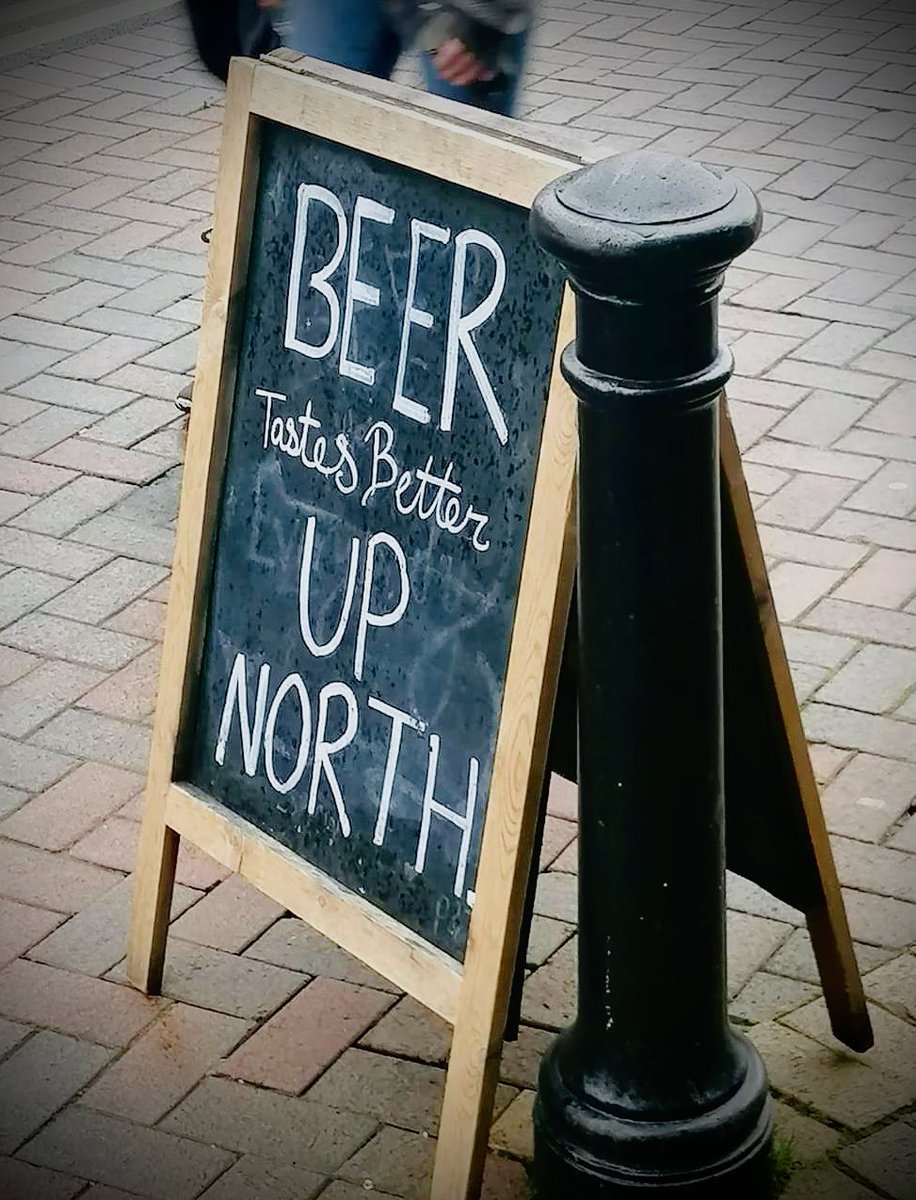 BEER
Tastes Better
UP
NORTH.